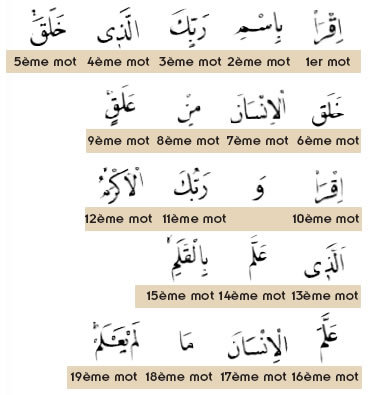 اِقْرَاْ بِاسْمِ رَبِّكَ الَّذٖى خَلَقَۚ
5ème mot 4ème mot 3ème mot 2ème mot 1er mot
خَلَقَ الْاِنْسَانَ مِنْ عَلَقٍۚ
9ème mot 8ème mot 7ème mot 6ème mot
اِقْرَاْ وَ رَبُّكَ الْاَكْرَمُۙ
12ème mot 11ème mot 10ème mot
اَلَّذٖى عَلَّمَ بِالْقَلَمِۙ
15ème mot 14ème mot 13ème mot
عَلَّمَ الْاِنْسَانَ مَا لَمْ يَعْلَمْؕ
19ème mot 18ème mot 17ème mot 16ème mot